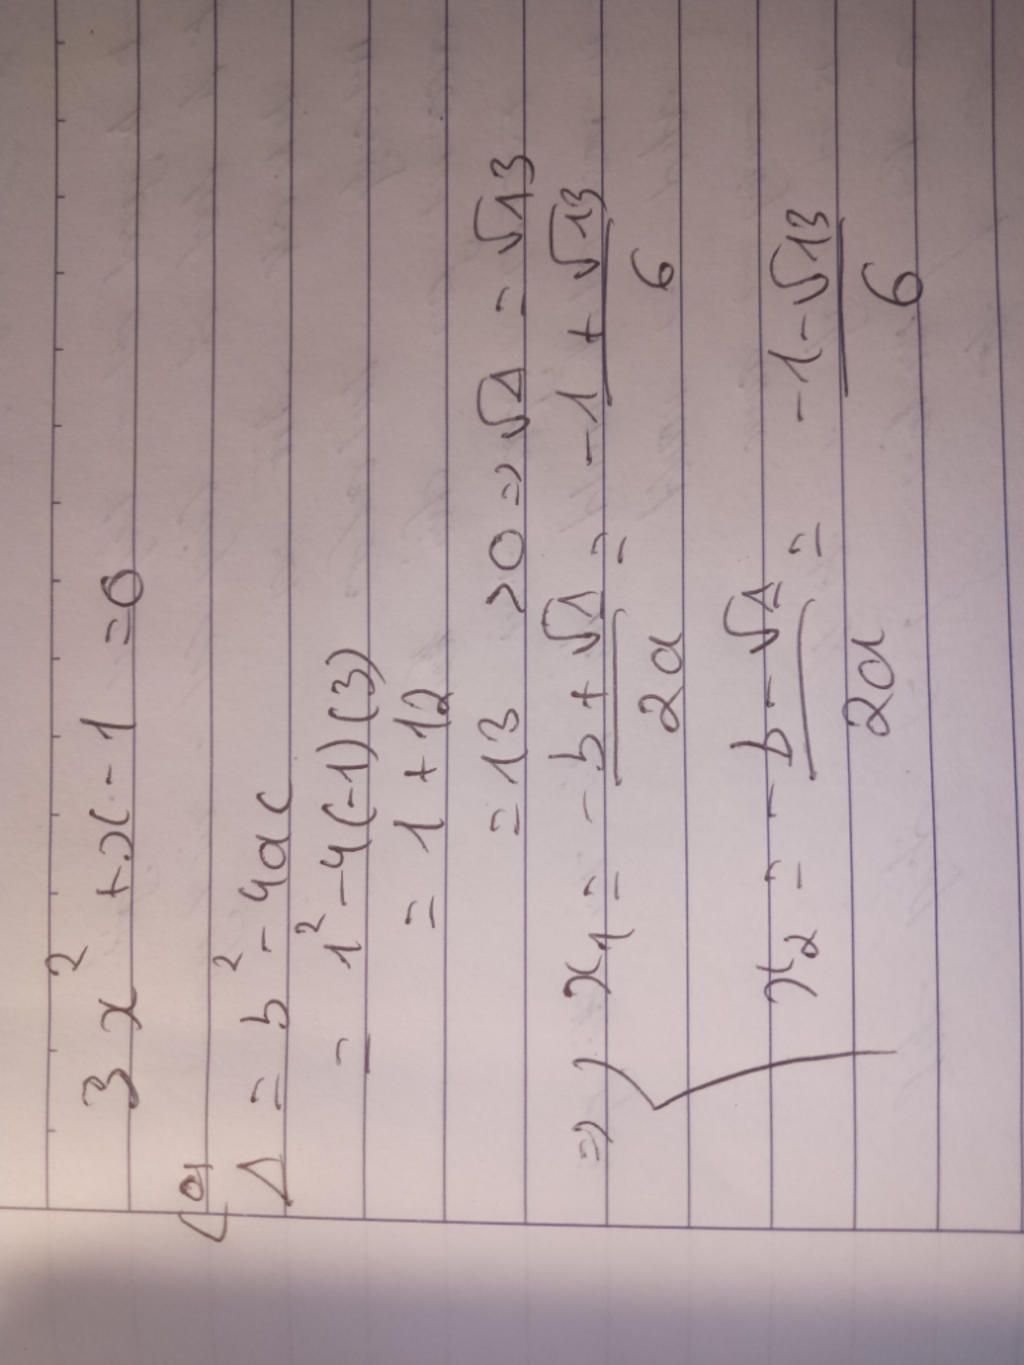 3x² + x - 1 = 0
Lời
Δ = b² - 4ac
= 1² - 4(-1)(3)
= 1 + 12
= 13 > 0 => √Δ = √13
=> { x₁ = (-b + √Δ)/2a = (-1 + √13)/6
x₂ = (-b - √Δ)/2a = (-1 - √13)/6